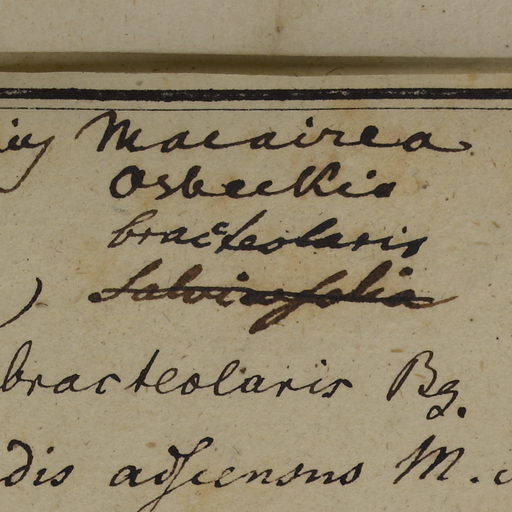 Macairea
Osbeckia
bracteolaris
Salvinifolia
bracteolaris Bg.
dis adscensus M.